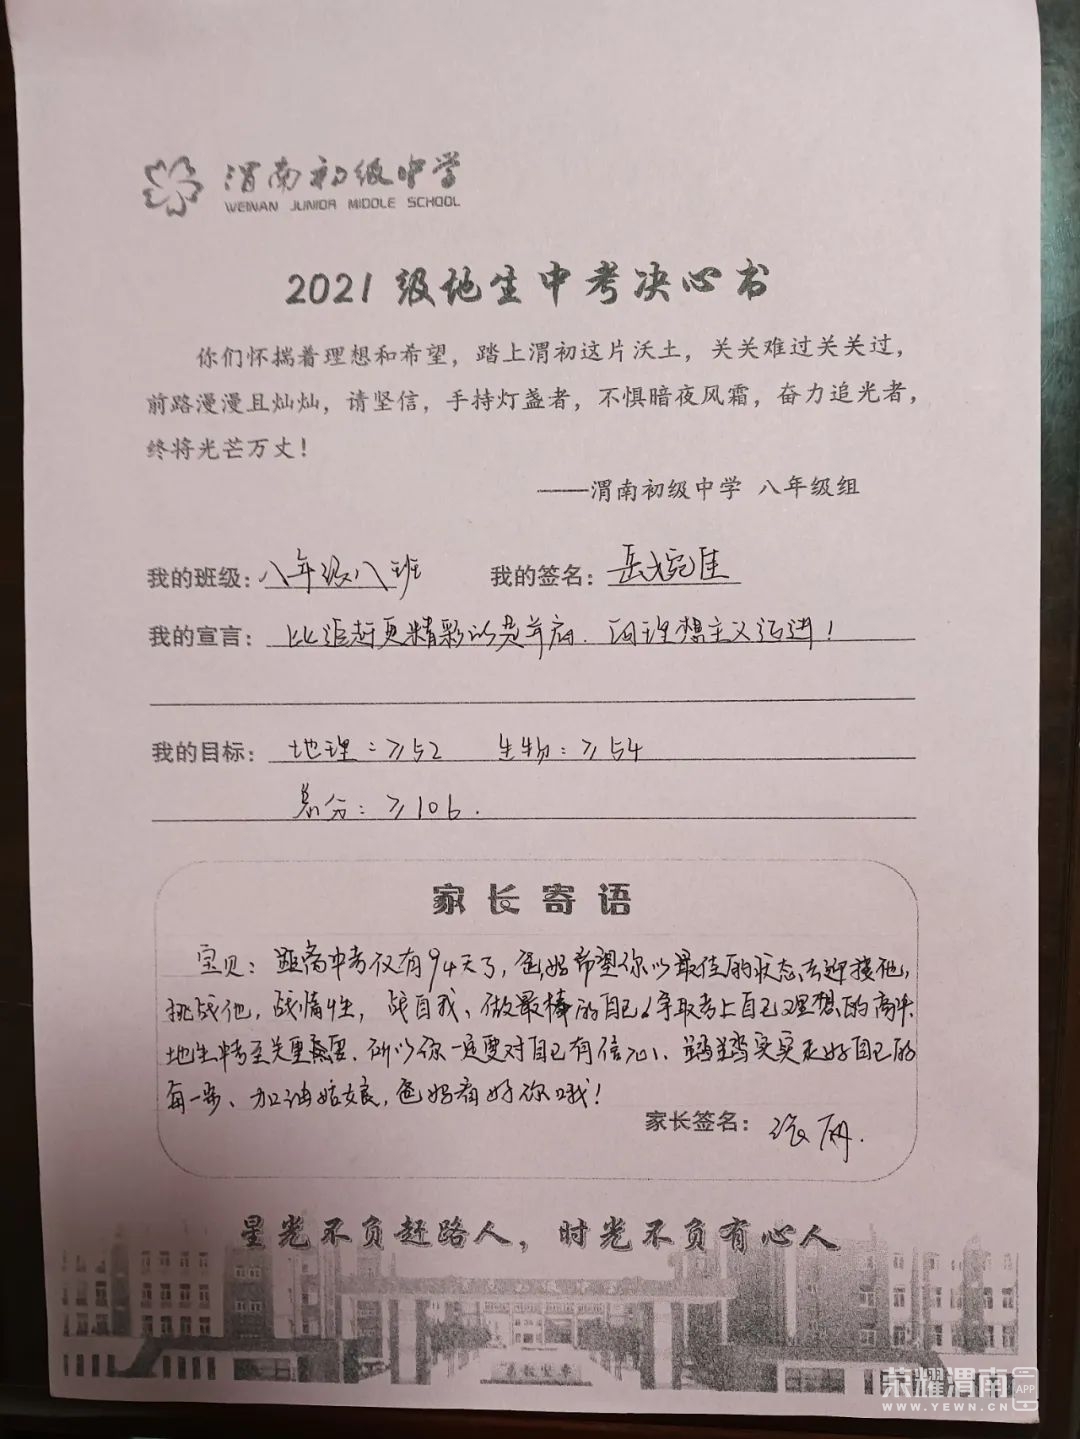 渭南初级中学
WEINAN JUNIOR MIDDLE SCHOOL
2021级地生中考决心书
你们怀揣着理想和希望，踏上渭初这片沃土，关关难过关关过，
前路漫漫且灿灿，请坚信，手持灯盏者，不惧暗夜风霜，奋力追光者，
终将光芒万丈！
——渭南初级中学 八年级组
我的班级：八年级八班 我的签名：岳宛佳
我的宣言：比追赶更精彩的是并肩．向理想主义迈进！
我的目标：地理：≥52 生物：≥54
总分：≥106．
家长寄语
宝贝：距离中考仅有94天了，爸妈希望你以最佳的状态去迎接他，
挑战他，战惰性，战自我、做最棒的自己！争取考上自己理想的高中．
地生中考至关重要．所以你一定要对自己有信心、踏踏实实走好自己的
每一步、加油姑娘，爸妈看好你哦！
家长签名：张丽．
星光不负赶路人，时光不负有心人
荣耀渭南APP
WWW.YEWN.CN